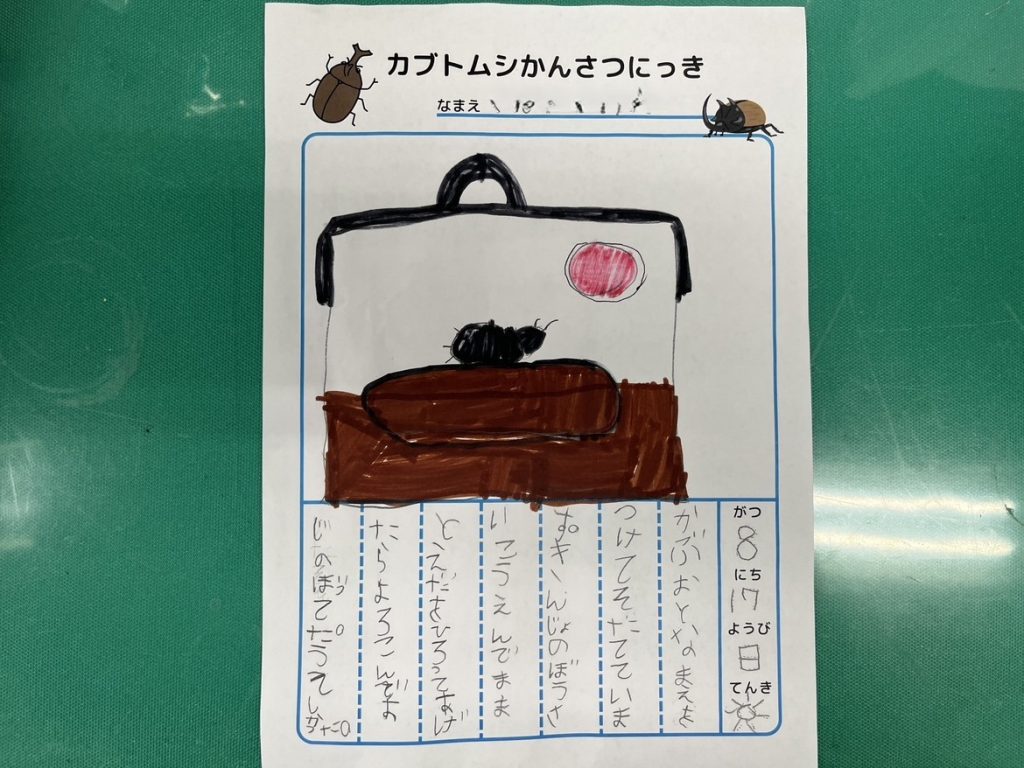 カブトムシかんさつにっき
なまえ
がつ
8
にち
17
ようび
日
てんき
かぶおとなまえを
つけてそだてていま
す。きんじょのぼうさ
いこうえんでまま
とえだをひろってあげ
たらよろこんでお
じのぼってた。うれしかた。